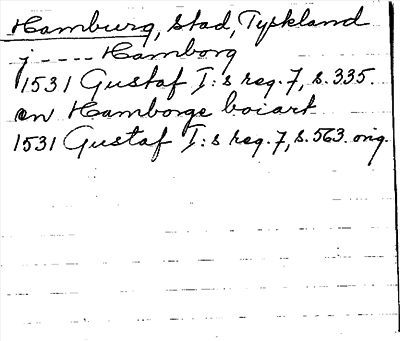 Hamburg, Stad, Tyskland
j ---- Hamborg
1531 Gustaf I:s reg. 7, s. 335.
en Hamborge boiart
1531 Gustaf I:s reg. 7, s. 563. orig.